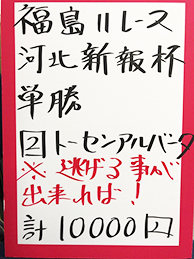 福島11レース
河北新報杯
単勝
2トーセンアルバータ
※逃げる事が
出来れば！
計10000円